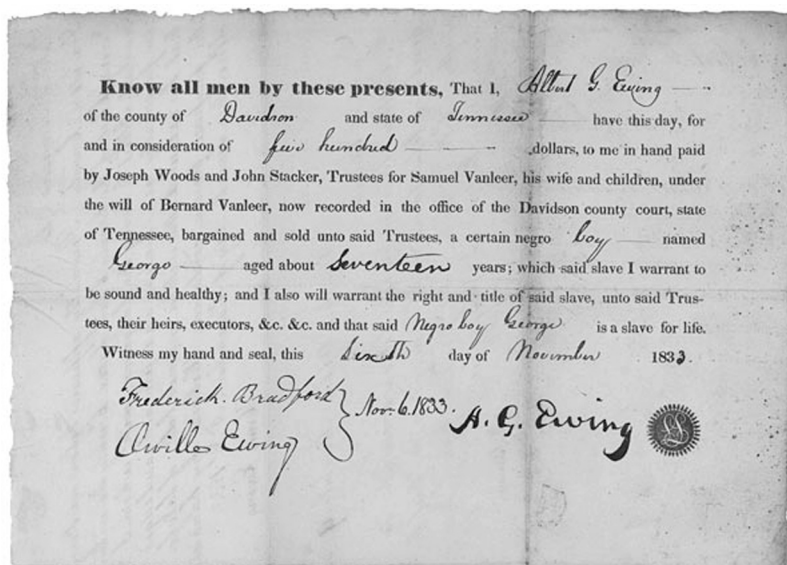 Know all men by these presents, That I, Albert G. Ewing
of the county of Davidson and state of Tennessee have this day, for
and in consideration of five hundred dollars, to me in hand paid
by Joseph Woods and John Stacker, Trustees for Samuel Vanleer, his wife and children, under
the will of Bernard Vanleer, now recorded in the office of the Davidson county court, state
of Tennessee, bargained and sold unto said Trustees, a certain negro boy named
George aged about Seventeen years; which said slave I warrant to
be sound and healthy; and I also will warrant the right and title of said slave, unto said Trus-
tees, their heirs, executors, &c. &c. and that said Negro boy George is a slave for life.
Witness my hand and seal, this Sixth day of November 1833.
Frederick Bradford
Nov. 6. 1833. A. G. Ewing
Orville Ewing